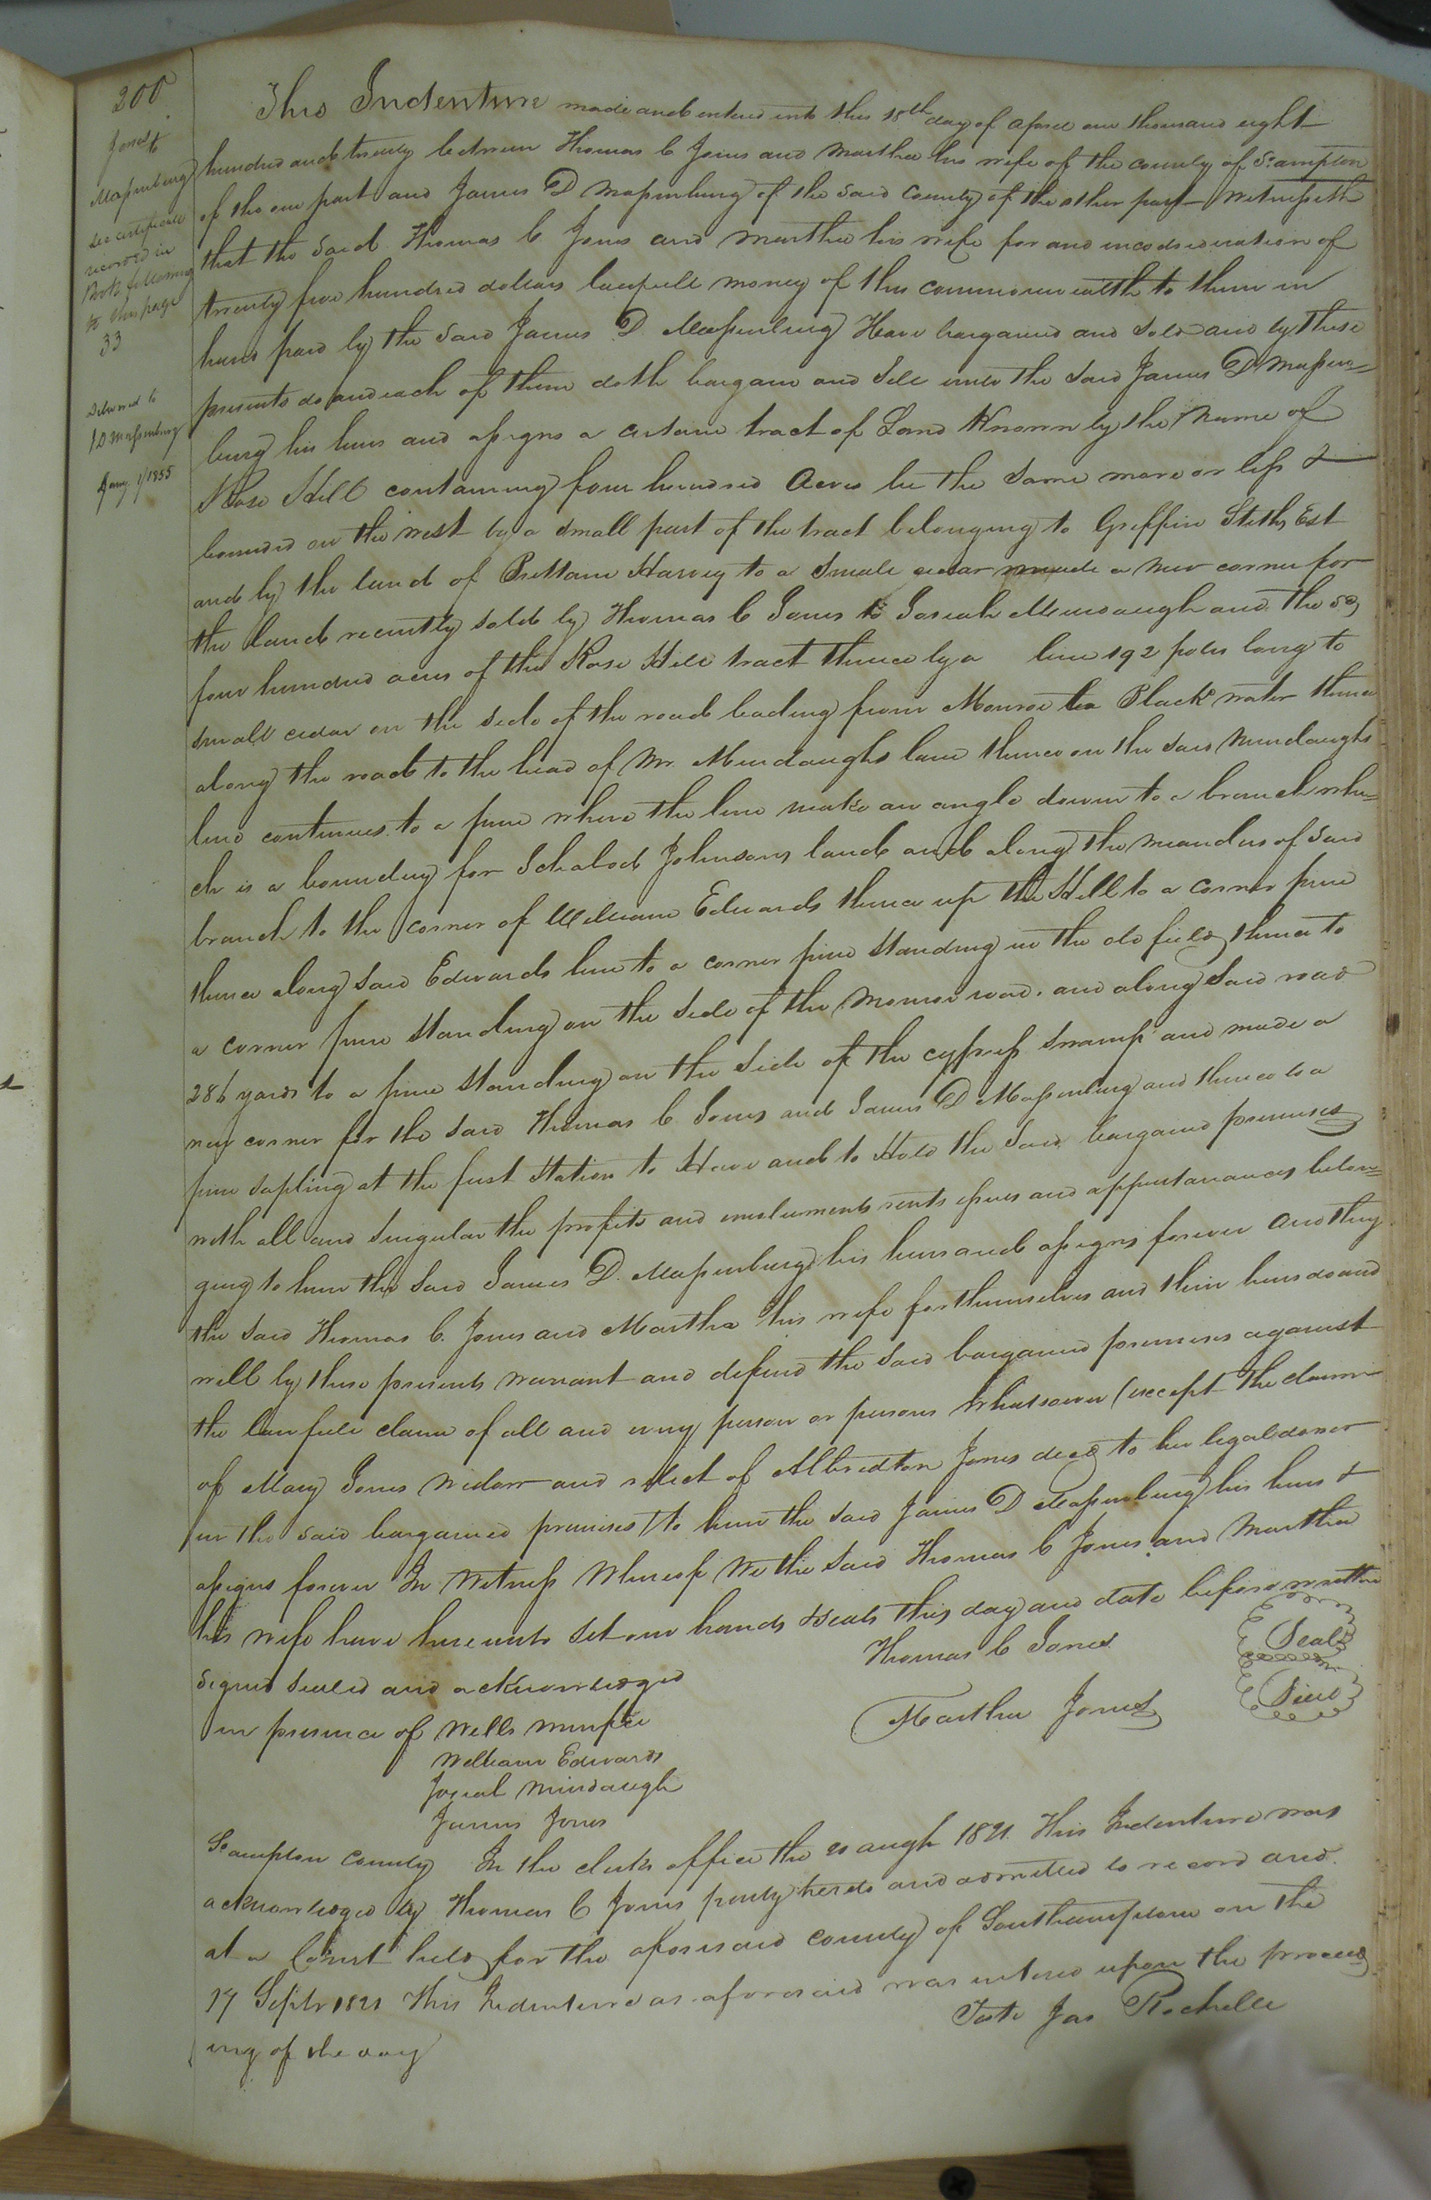 200
Jones
to
Massenburg
see certificate
recorded in
Book following
to this page
33
Delivered to
J D Massenburg
Jany 1/1855
This Indenture made and entered into this 15th day of april one thousand eight
hundred and twenty between Thomas C Jones and Martha his wife of the county of S:ampton
of the one part and James D Massenburg of the said County of the other part Witnesseth
that the said Thomas C Jones and Martha his wife for and in consideration of
twenty five hundred dollars lawfull money of this commonwealth to them in
hand paid by the said James D Massenburg Have bargained and sold and by these
presents do and each of them doth bargain and sell unto the said James D Massen=
burg his heirs and assigns a certain tract of Land Known by the Name of
Rose Hill containing four hundred Acres be the same more or less &
bounded on the west by a small part of the tract belonging to Griffin Stiths Est
and by the land of Brittain Harvey to a small cedar made a new corner for
the land recently sold by Thomas C Jones to Josiah Mundaugh and the sd
four hundred acres of the Rose Hill tract thence by a line 192 poles long to
small cedar on the side of the road leading from Monroe to Black water thence
along the road to the head of Mr. Mundaughs lane thence on the said Mundaughs
line continues to a pine where the line make an angle down to a branch whi=
ch is a boundry for Johnsons land and along the meanders of said
branch to the corner of William Edwards thence up the Hill to a corner pine
thence along said Edwards line to a corner pine standing in the old field thence to
a corner pine standing on the side of the Monroe road. and along said road
286 yards to a pine standing on the side of the cypress swamp and made a
new corner for the said Thomas C Jones and James D Massenburg and thence to a
pine sapling at the first Station to Have and to Hold the said bargained premises
with all and singular the profits and emoluments rents issues and appurtanances belon=
ging to him the said James D. Massenburg his heirs and assigns forever And they
the said Thomas C. Jones and Martha his wife for themselves and their heirs do and
will by these presents warrant and defend the said bargained premises against
the lawfull claim of all and every person or persons whatsoever (except the claim
of Mary Jones widow and relict of Albridton Jones decd to her legal dower
in the said bargained premises) to him the said James D Massenburg his heirs &
assigns forever In Witness Whereof We the said Thomas C Jones and Martha
his wife have hereunto set our hands & seals this day and date before written
Signed sealed and acknowledged
Thomas C Jones Seal
in presence of Wells
Martha Jones Seal
William Edwards
Josiah Mundaugh
James Jones
S:ampton County In the clerks office the 20 augt 1821. This Indenture was
acknowledged by Thomas C Jones party hereto and admitted to record and
at a Court held for the aforesaid county of Southampton on the
17 Septr 1821 This Indenture as aforesaid was entered upon the proceed
ing of the day
Teste Jas Rochelle